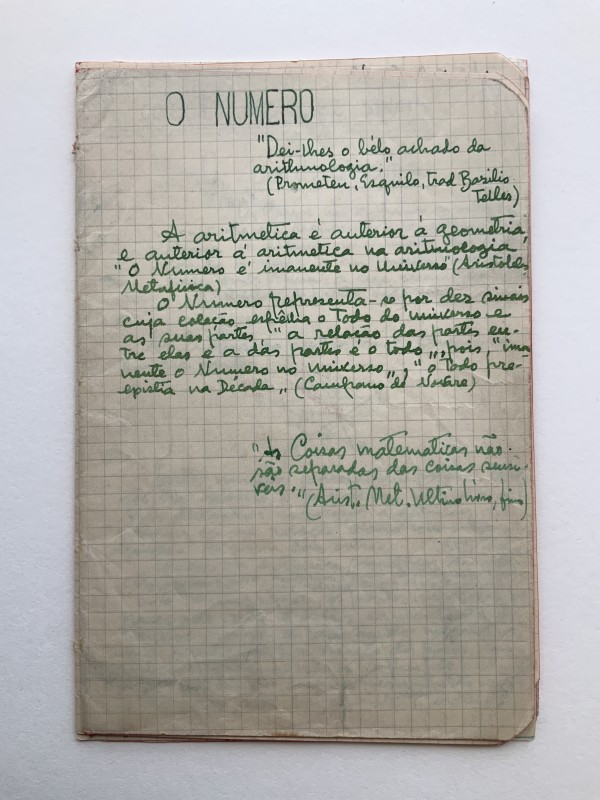 O NUMERO
"Dei-lhes o bélo achado da
arithmologia."
(Prometeu, Esquilo, trad Basilio
Telles)
A aritmetica é anterior á geometria,
e anterior á aritmetica na aritmologia,
"O Numero é imanente no Universo" (Aristoteles
Metafisica)
O Numero representa-se por dez sinais
cuja colação espelha o Todo do universo e
as suas partes, "a relação das partes en-
tre elas e a das partes é o todo", pois, "ima
nente o Numero no universo", "o Todo pre-
existia na Década" (Campano de Novare)
"As Coisas matematicas não
são separadas das coisas sensi-
veis."
(Arist. Met. Ultimo livro, fim)